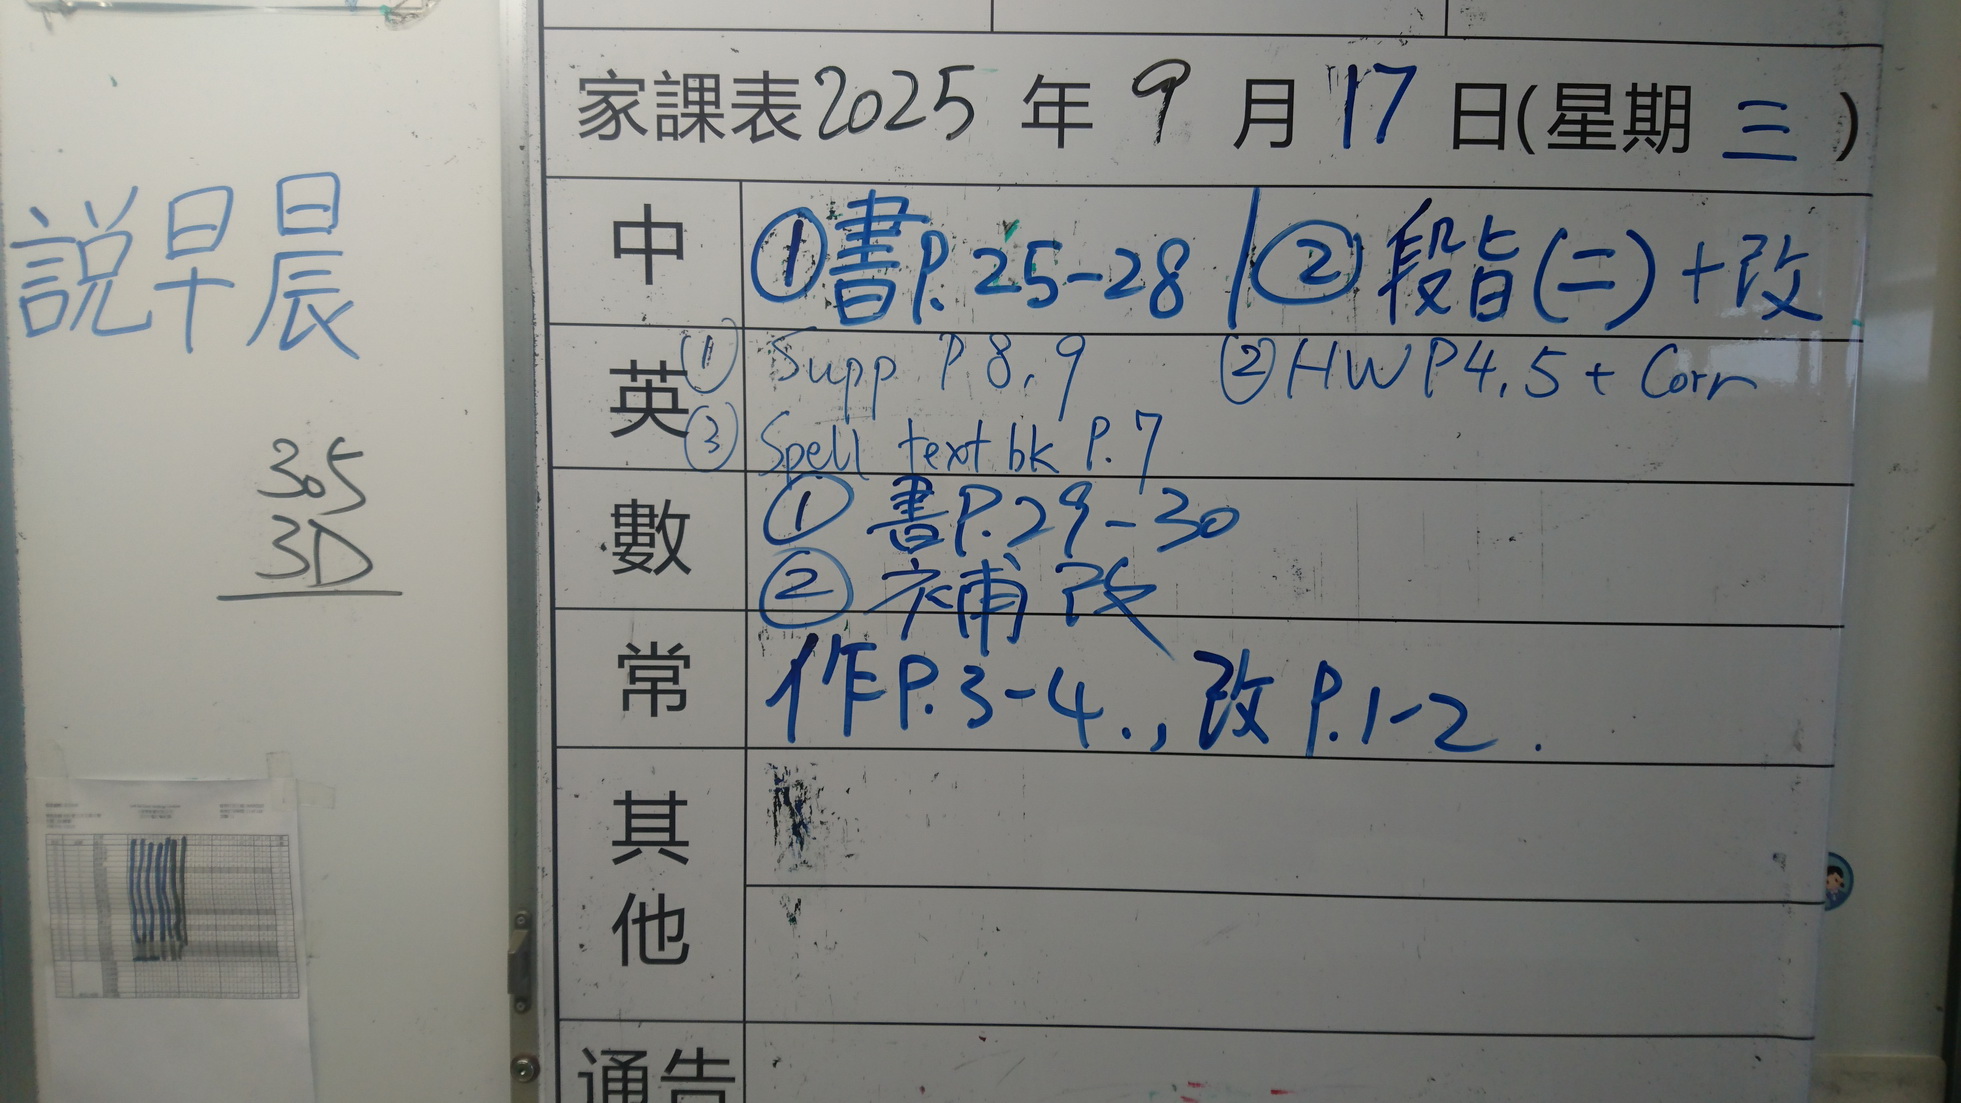 家課表2025年9月17日(星期三)
説早晨
305
3D
中
①書P.25-28 | ②段旨(二)+改
英
① Supp P 8, 9 ② HW P 4, 5 + Corr
③ Spell text bk P. 7
數
① 書P.29-30
② 補改
常
作P.3-4., 改P.1-2.
其他
通告